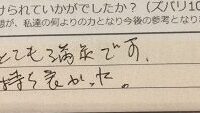 けられていかがでしたか？（ズバリ10
想が、私達の何よりの力となり今後の参考となり
とても満足です。
持ち良かった。